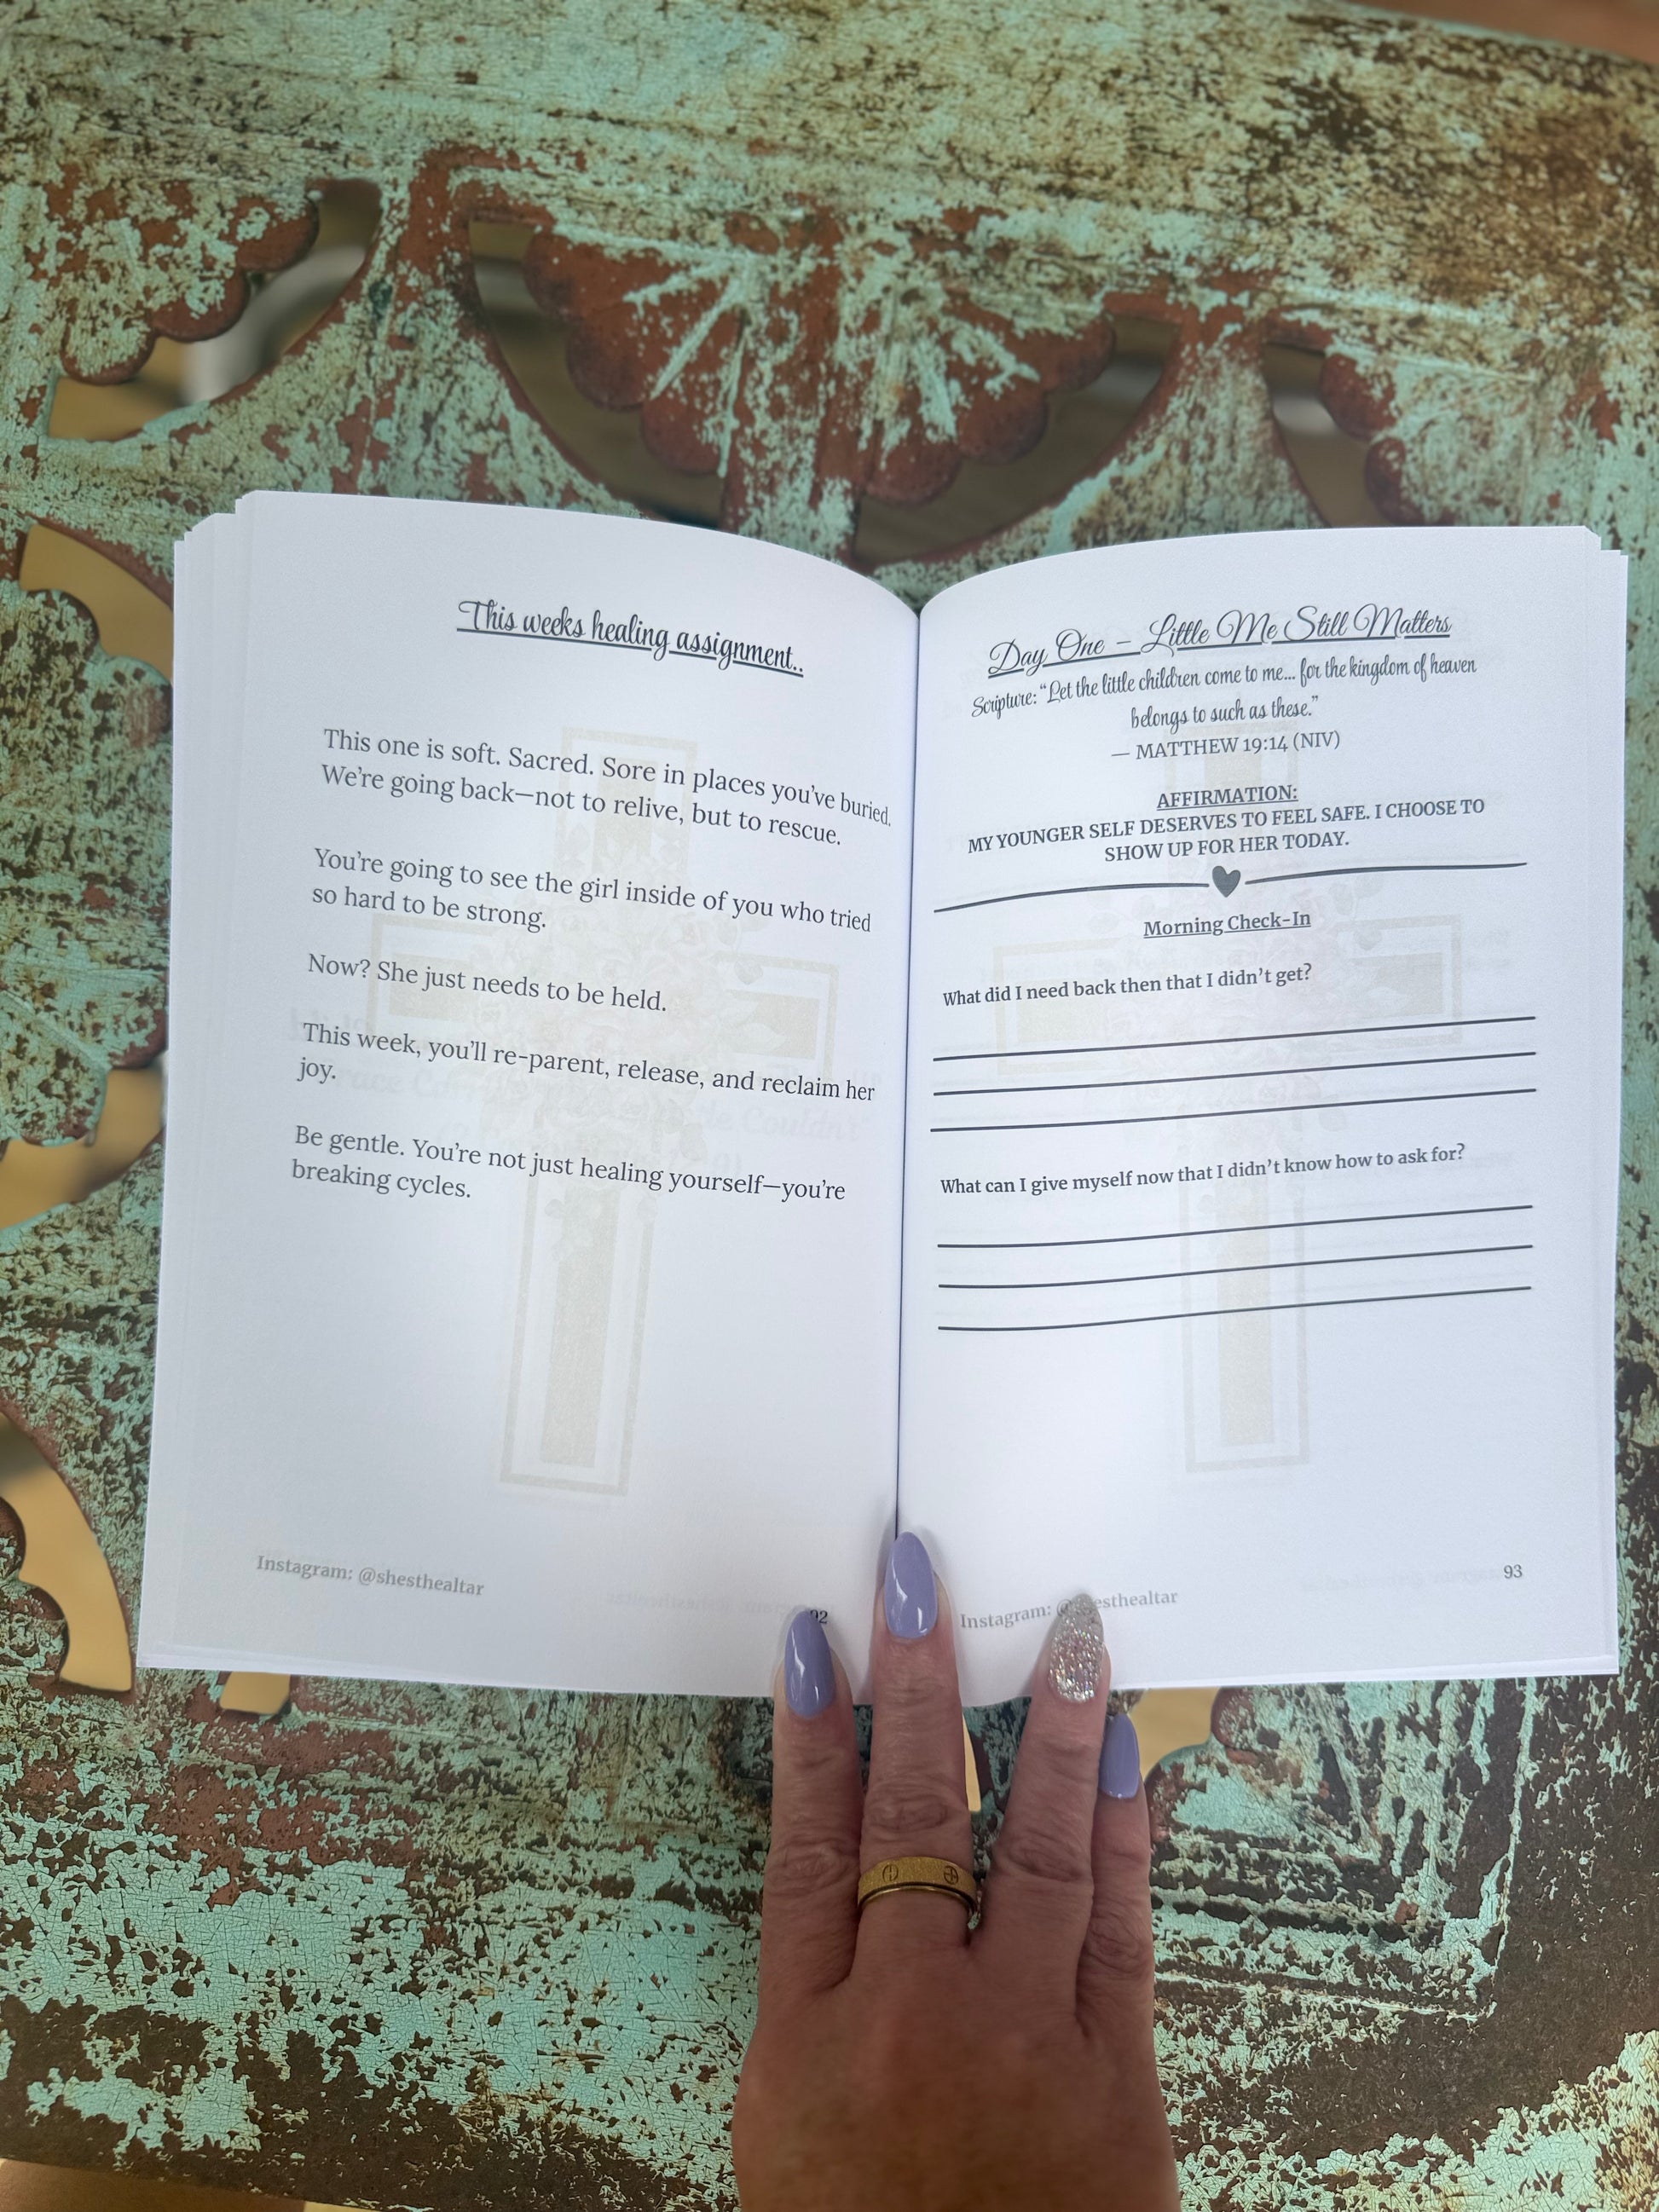 This weeks healing assignment..
This one is soft. Sacred. Sore in places you've buried.
We're going back—not to relive, but to rescue.
You're going to see the girl inside of you who tried
so hard to be strong.
Now? She just needs to be held.
This week, you'll re-parent, release, and reclaim her
joy.
Be gentle. You're not just healing yourself—you're
breaking cycles.
Instagram: @shesthealtar
92
Day One – Little Me Still Matters
Scripture: “Let the little children come to me... for the kingdom of heaven
belongs to such as these.”
— MATTHEW 19:14 (NIV)
AFFIRMATION:
MY YOUNGER SELF DESERVES TO FEEL SAFE. I CHOOSE TO
SHOW UP FOR HER TODAY.
Morning Check-In
What did I need back then that I didn't get?
What can I give myself now that I didn't know how to ask for?
Instagram: @shesthealtar
93